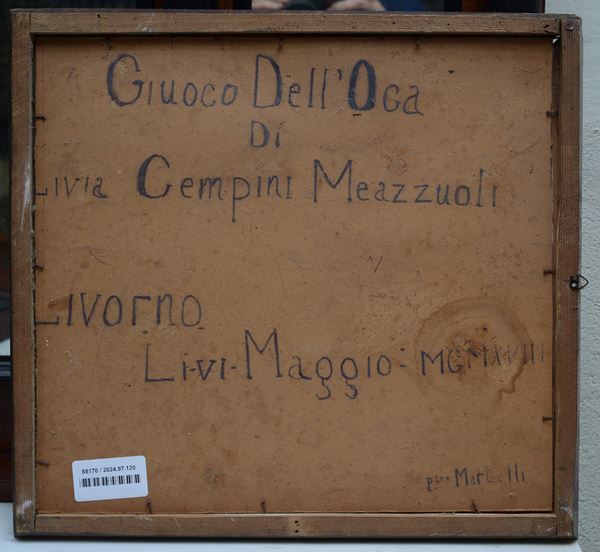 Giuoco Dell'Oca
Di
Livia Cempini Meazzuoli
Livorno
Li-vi-Maggio: MCMXVIII
88170 / 2024.97.120